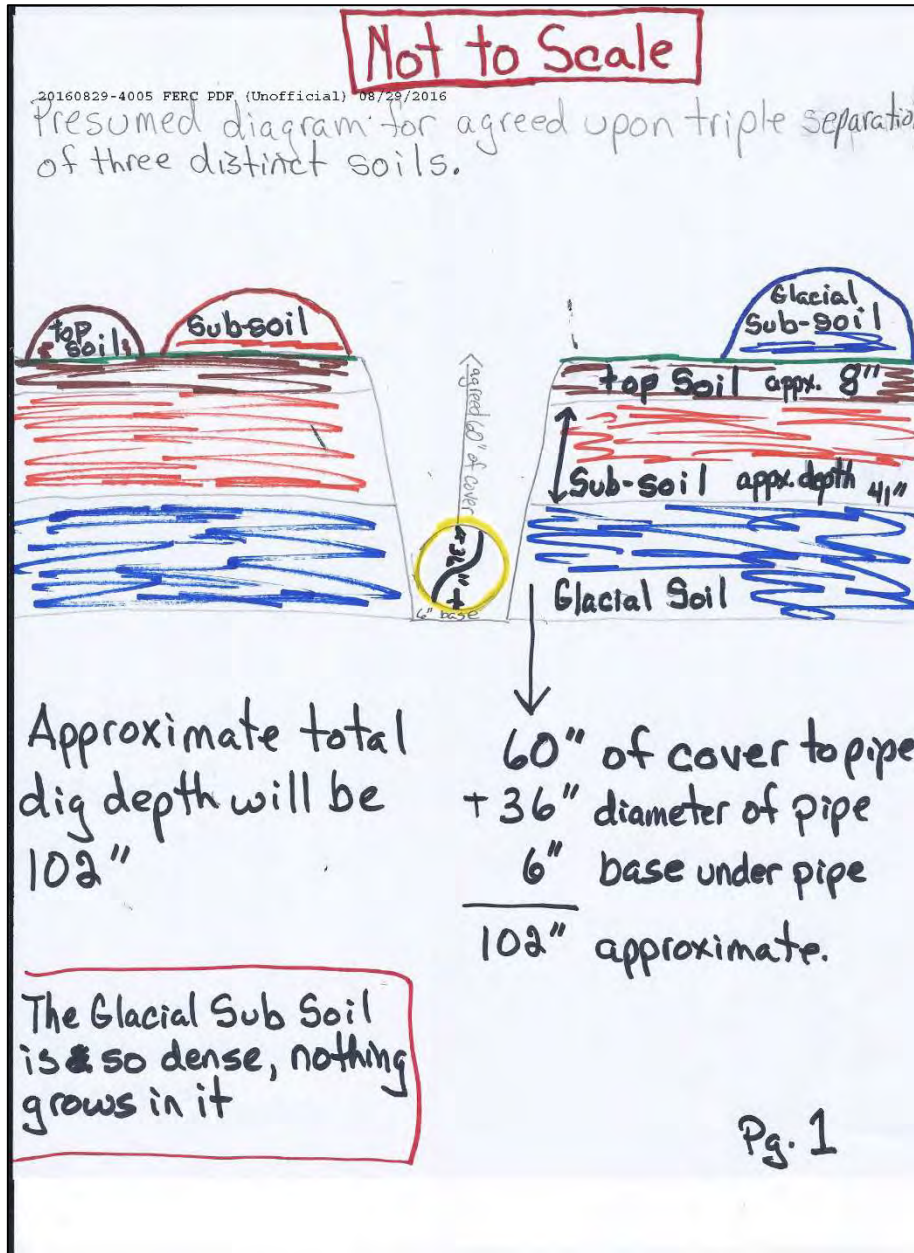 Not to Scale
20160829-4005 FERC PDF (Unofficial) 08/29/2016
Presumed diagram for agreed upon triple separation
of three distinct soils.
top
soils
Sub-soil
Glacial
Sub-soil
agreed 60" of cover
top Soil appx. 8"
Sub-soil appx. depth 41"
← 36" →
6" base
Glacial Soil
Approximate total
dig depth will be
102"
60" of cover to pipe
+36" diameter of pipe
6" base under pipe
102" approximate.
The Glacial Sub Soil
is so dense, nothing
grows in it
Pg. 1